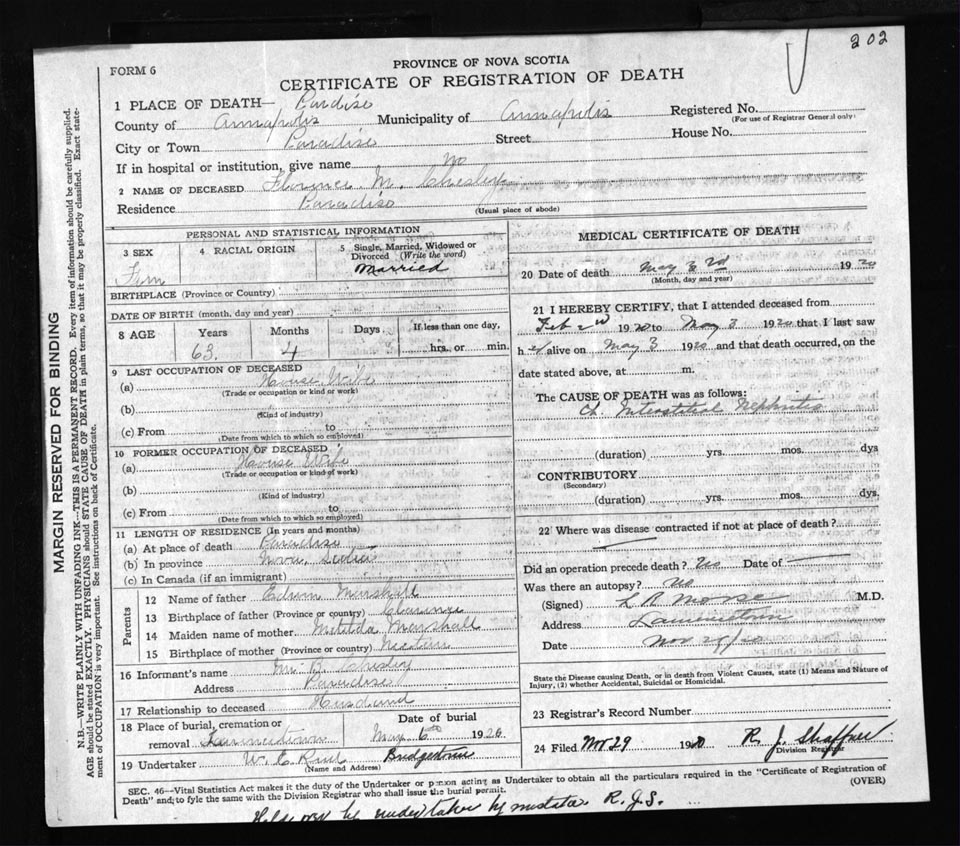 202
FORM 6
PROVINCE OF NOVA SCOTIA
CERTIFICATE OF REGISTRATION OF DEATH
1 PLACE OF DEATH— Paradise
County of Annapolis Municipality of Annapolis Registered No.
(For use of Registrar General only)
City or Town Paradise Street House No.
If in hospital or institution, give name No
2 NAME OF DECEASED Florence M. Chesley
Residence Paradise
(Usual place of abode)
PERSONAL AND STATISTICAL INFORMATION
3 SEX Fem
4 RACIAL ORIGIN
5 Single, Married, Widowed or Divorced (Write the word) Married
BIRTHPLACE (Province or Country)
DATE OF BIRTH (month, day and year)
8 AGE Years 63. Months 4 Days If less than one day, hrs. or min.
9 LAST OCCUPATION OF DECEASED
(a) House Wife
(Trade or occupation or kind or work)
(b)
(Kind of industry)
(c) From to
(Date from which to which so employed)
10 FORMER OCCUPATION OF DECEASED
(a) House Wife
(Trade or occupation or kind of work)
(b)
(Kind of industry)
(c) From to
(Date from which to which so employed)
11 LENGTH OF RESIDENCE (In years and months)
(a) At place of death Paradise
(b) In province Nova Scotia
(c) In Canada (if an immigrant)
Parents
12 Name of father Edwin
13 Birthplace of father (Province or country) Clarence
14 Maiden name of mother Matilda Marshall
15 Birthplace of mother (Province or country) Nictau
16 Informant's name Mr B. Chesley
Address Paradise
17 Relationship to deceased Husband
18 Place of burial, cremation or removal Lawrencetown
Date of burial May 6th 1920
19 Undertaker W. C. Bridgetown
(Name and Address)
MEDICAL CERTIFICATE OF DEATH
20 Date of death May 3rd 1920
(Month, day and year)
21 I HEREBY CERTIFY, that I attended deceased from
Feb 2nd 1920 to May 3 1920 that I last saw
her alive on May 3 1920 and that death occurred, on the
date stated above, at m.
The CAUSE OF DEATH was as follows:
Ch. Interstitial Nephritis
(duration) yrs. mos. dys
CONTRIBUTORY
(Secondary)
(duration) yrs. mos. dys.
22 Where was disease contracted if not at place of death?
Did an operation precede death? No Date of
Was there an autopsy? No
(Signed) L R Morse M.D.
Address Lawrencetown
Date Nov
State the Disease causing Death, or in death from Violent Causes, state (1) Means and Nature of
Injury, (2) whether Accidental, Suicidal or Homicidal.
23 Registrar's Record Number
24 Filed Nov 29 1920 R. J. Shaffner
Division Registrar
SEC. 46—Vital Statistics Act makes it the duty of the Undertaker or person acting as Undertaker to obtain all the particulars required in the "Certificate of Registration of
Death" and to fyle the same with the Division Registrar who shall issue the burial permit.
(OVER)
Held over by undertaker by mistake R.J.S.
MARGIN RESERVED FOR BINDING
N.B.—WRITE PLAINLY WITH UNFADING INK—THIS IS A PERMANENT RECORD. Every item of information should be carefully supplied.
AGE should be stated EXACTLY. PHYSICIANS should STATE CAUSE OF DEATH in plain terms, so that it may be properly classified. Exact state-
ment of OCCUPATION is very important. See instructions on back of Certificate.